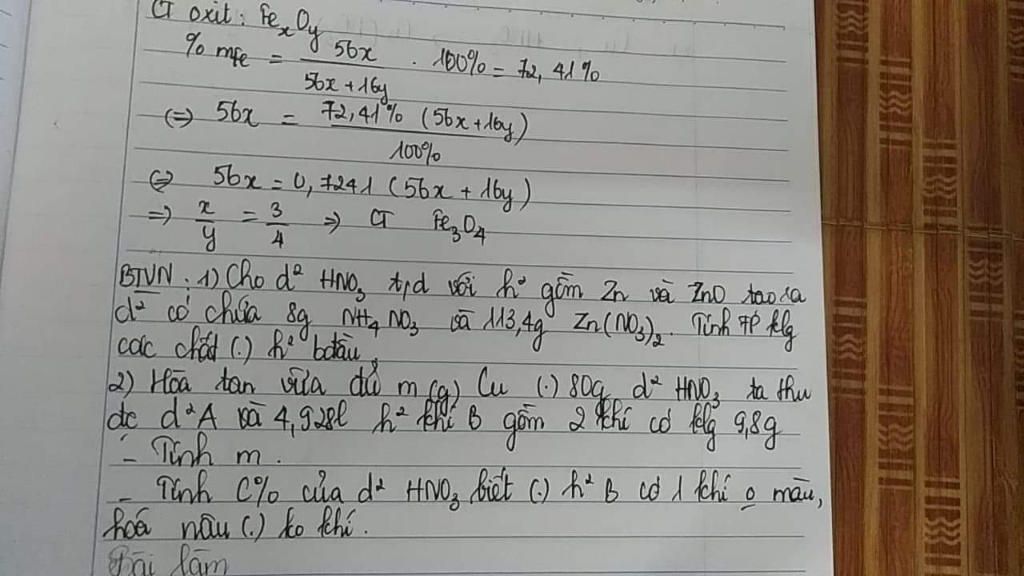 CT oxit: FexOy
% mFe = 56x / 56x+16y . 100% = 72,41%
(=) 56x = 72,41% (56x+16y) / 100%
(=) 56x = 0,7241 (56x + 16y)
=) x/y = 3/4 =) CT Fe3O4
BTVN: 1) Cho d² HNO3 t/d với h² gồm Zn và ZnO tạo ra
d² có chứa 8g NH4NO3 và 113,4g Zn(NO3)2. Tính TP klg
các chất (.) h² bđầu.
2) Hòa tan vừa đủ m(g) Cu (.) 80g d² HNO3 ta thu
đc d² A và 4,928l h² khí B gồm 2 khí có klg 9,8g
- Tính m.
- Tính C% của d² HNO3 biết (.) h² B có 1 khí o màu,
hoá nâu (.) ko khí.
Bài làm